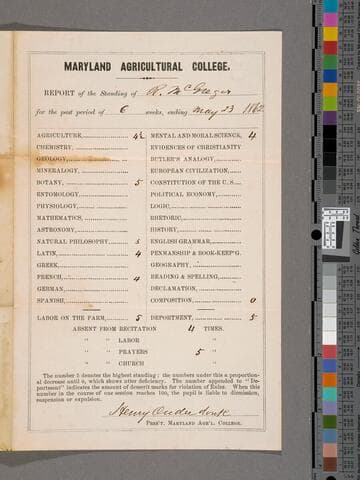 MARYLAND AGRICULTURAL COLLEGE.
REPORT of the Standing of R. McGregor
for the past period of 6 weeks, ending May 23 1862
AGRICULTURE, 4½
CHEMISTRY,
GEOLOGY,
MINERALOGY,
BOTANY, 5
ENTOMOLOGY,
PHYSIOLOGY,
MATHEMATICS,
ASTRONOMY,
NATURAL PHILOSOPHY, 5
LATIN, 4
GREEK,
FRENCH, 4
GERMAN,
SPANISH,
LABOR ON THE FARM, 5
MENTAL AND MORAL SCIENCE, 4
EVIDENCES OF CHRISTIANITY
BUTLER'S ANALOGY,
EUROPEAN CIVILIZATION,
CONSTITUTION OF THE U. S.
POLITICAL ECONOMY,
LOGIC,
RHETORIC,
HISTORY,
ENGLISH GRAMMAR,
PENMANSHIP & BOOK-KEEP'G.
GEOGRAPHY,
READING & SPELLING,
DECLAMATION,
COMPOSITION, 0
DEPORTMENT, 5
ABSENT FROM RECITATION 4 TIMES.
" " LABOR "
" " PRAYERS 5 "
" " CHURCH
The number 5 denotes the highest standing; the numbers under this a proportion-
al decrease until 0, which shows utter deficiency. The number appended to "De-
portment" indicates the amount of demerit marks for violation of Rules. When this
number in the course of one session reaches 100, the pupil is liable to dismission,
suspension or expulsion.
Henry Onderdonk
PRES'T. MARYLAND AGR'L. COLLEGE.